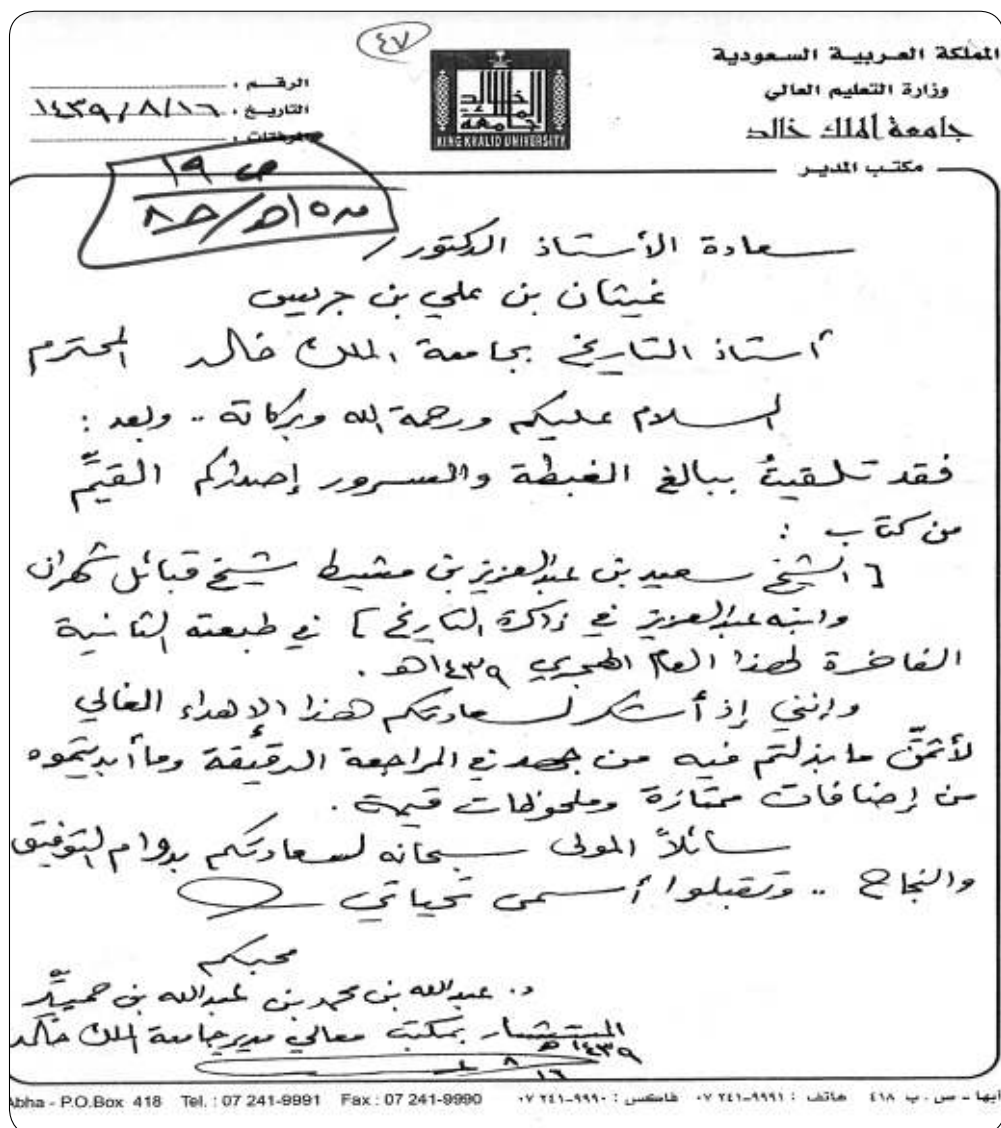 ٤٧
المملكة العربية السعودية
وزارة التعليم العالي
جامعة الملك خالد
مكتب المدير
جامعة الملك خالد
KING KHALID UNIVERSITY
الرقم :
التاريخ : ١٤٣٩/٨/١٦
المرفقات :
ص ١٩
سعادة الأستاذ الدكتور /
غيثان بن علي بن جريس
أستاذ التاريخ بجامعة الملك خالد المحترم
السلام عليكم ورحمة الله وبركاته .. وبعد :
فقد تلقيتُ ببالغ الغبطة والسرور إصداركم القيِّم
من كتاب :
[ الشيخ سعيد بن عبدالعزيز بن مشيط شيخ قبائل شهران
وابنه عبدالعزيز في ذاكرة التاريخ ] في طبعته الثانية
الفاخرة لهذا العام الهجري ١٤٣٩هـ .
وإنني إذ أشكر لسعادتكم هذا الإهداء الغالي
لأثمّن ما بذلتم فيه من جهد في المراجعة الدقيقة وما أبديتموه
من إضافات ممتازة وملحوظات قيمة .
سائلاً المولى سبحانه لسعادتكم بدوام التوفيق
والنجاح .. وتقبلوا أسمى تحياتي
محبكم
د. عبدالله بن محمد بن عبدالله بن حميِّد
المستشار بمكتب معالي مدير جامعة الملك خالد
١٤٣٩هـ
٨
١٦
Abha - P.O.Box 418 Tel. : 07 241-9991 Fax : 07 241-9990
أبها - ص . ب ٤١٨ هاتف : ٩٩٩١-٢٤١ ٠٧ فاكس : ٩٩٩٠-٢٤١ ٠٧